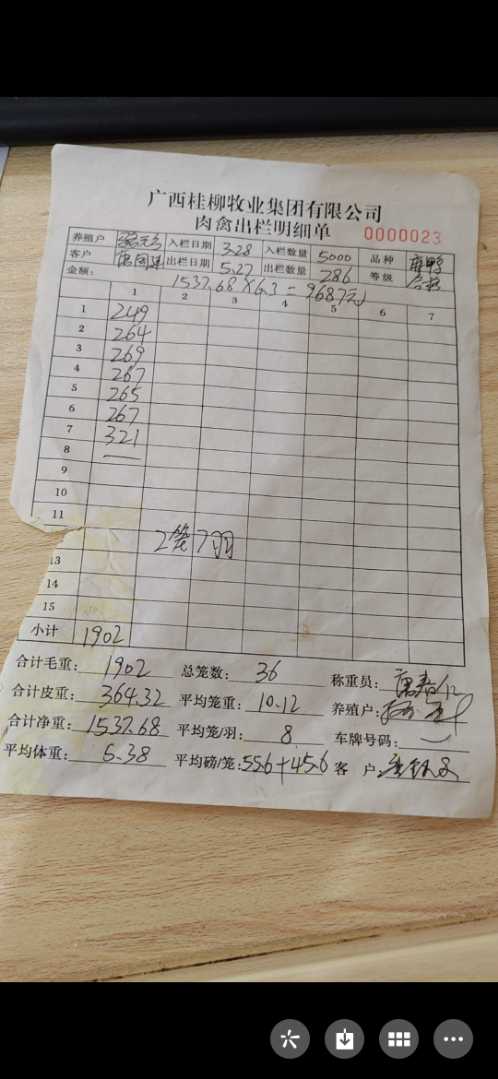 广西桂柳牧业集团有限公司
肉禽出栏明细单 0000023
养殖户 入栏日期 3.28 入栏数量 5000 品种 麻鸭
客户 出栏日期 5.27 出栏数量 286 等级 合格
金额: 1537.68×6.3=9687元
1 2 3 4 5 6 7
1 249
2 264
3 269
4 267
5 265
6 267
7 321
8
9
10
11
2笼7羽
13
14
15
小计 1902
合计毛重: 1902 总笼数: 36 称重员:
合计皮重: 364.32 平均笼重: 10.12 养殖户:
合计净重: 1537.68 平均笼/羽: 8 车牌号码:
平均体重: 5.38 平均磅/笼: 55.6+45.6 客 户: